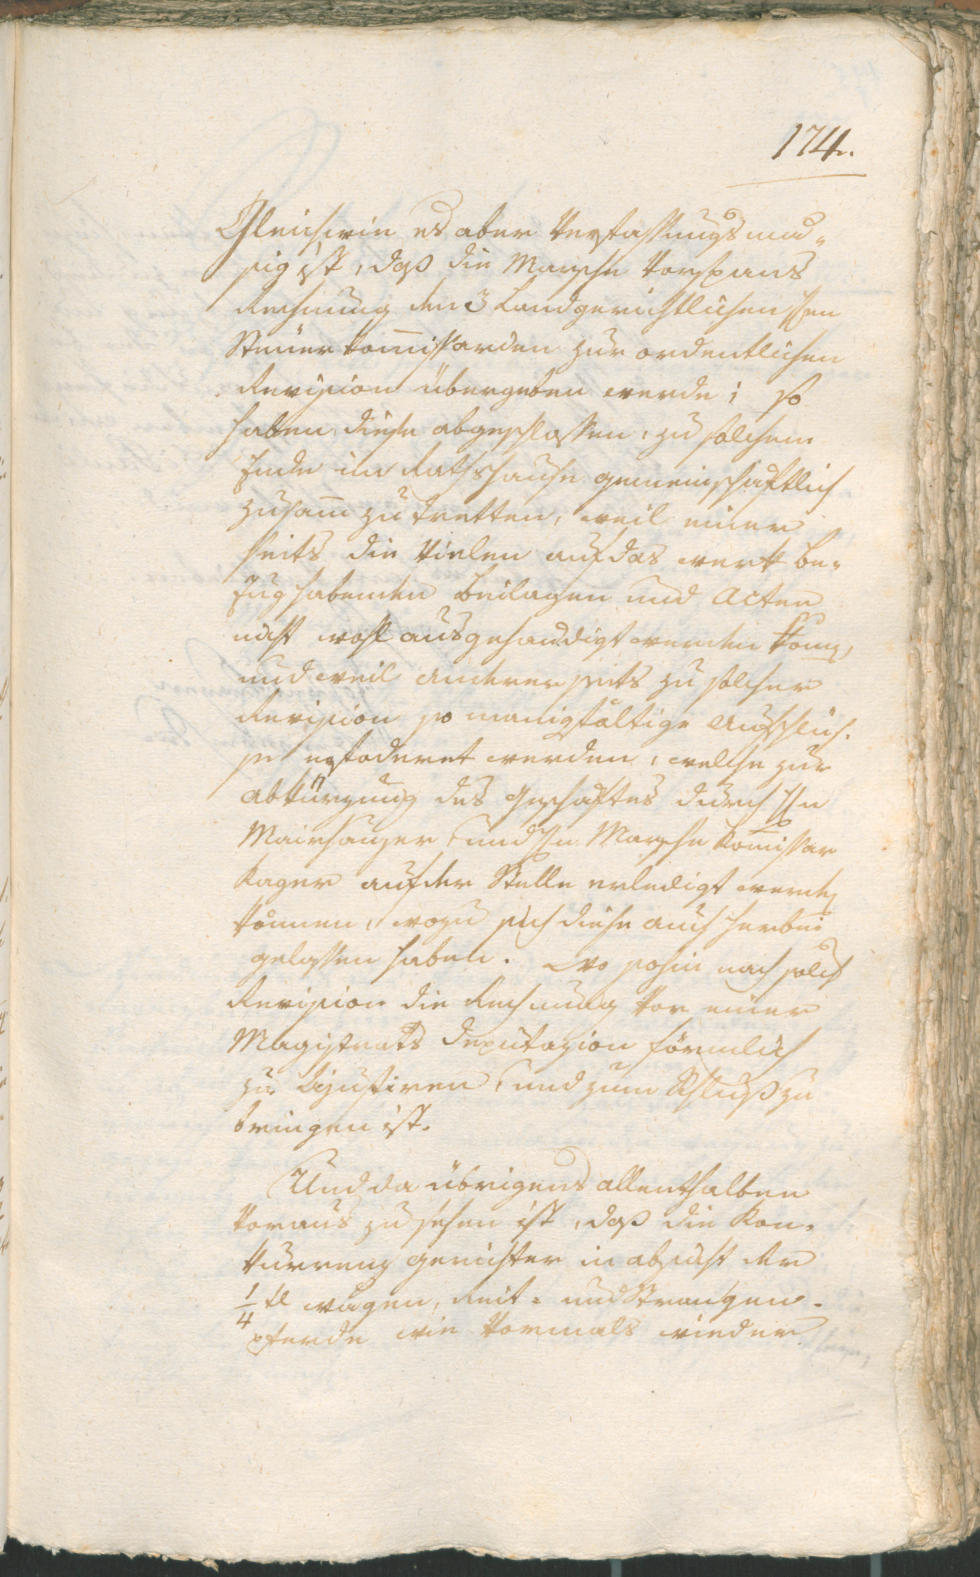 174.
Gleichwie es aber Verfassungsmä„
sig ist, daß die Marsche Vorspans
Rechnung den 3 Landgerichtlichen Hen
Steuer Kom̄issarden zur ordentlichen
Revision übergeben werde; so
haben diese abgeschlossen, zu solchem
Ende im Rathshause gemeinschaftlich
zusam̄ zu tretten, weil einer
seits die Vielen auf das werk be„
zug habenden Beilagen und Acten
nicht wohl ausgehändigt werden könn,
und weil anderer seits zu solcher
Revision so manigfältige Aufschlüs.
se erfoderet werden, welche zur
abkürzung des Geschäftes durch Hn
Mairhauser und Hn Marsche Kom̄issar
Kager auf der Stelle erledigt werden
können, wozu sich diese auch herbei
gelassen haben. Wo sohin nach solch
Revision die Rechnung vor einer
Magistrats Deputazion förmlich
zu Ajustiren, und zum Schluß zu
bringen ist.
Und da übrigens allenthalben
voraus zu sehen ist, daß die Kon„
kurrenz gerichter in absicht der
1/4 tl wägen, Reit= und Strangen„
pferde wie vormals wieder